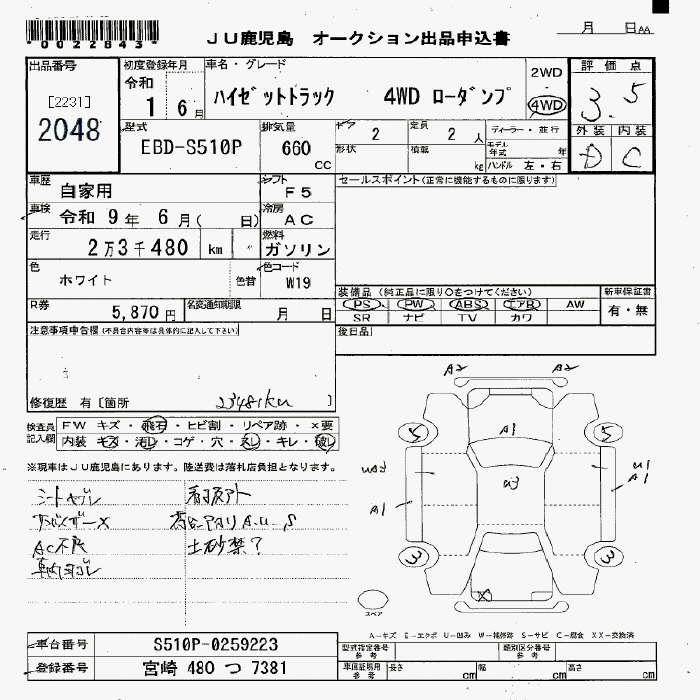 -0022843-
JU鹿児島 オークション出品申込書
月 日AA
出品番号
[2231]
2048
初度登録年月
令和
1 6月
車名・グレード
ハイゼットトラック 4WD ローダンプ
2WD
4WD
評価点
3.5
外装 内装
D C
型式
EBD-S510P
排気量
660
CC
ドア
2
定員
2 人
形状
積載
kg
ディーラー・並行
モデル年式 年
ハンドル 左・右
車歴
自家用
シフト
F5
車検
令和 9年 6月( 日)
冷房
AC
走行
2万3千480 km
燃料
ガソリン
色
ホワイト
色替
色コード
W19
R券
5,870円
名変通知期限
月 日
セールスポイント(正常に機能するものに限ります)
装備品 (純正品に限り○をつけてください)
PS PW ABS エアB AW
SR ナビ TV カワ
新車保証書
有・無
後日品
注意事項申告欄(不具合内容等は具体的に記入して下さい)
修復歴 有[箇所 ]
23481km
検査員記入欄
FW キズ・飛石・ヒビ割・リペア跡・×要
内装 キズ・汚レ・コゲ・穴・スレ・キレ・破レ
※現車はJU鹿児島にあります。陸送費は落札店負担となります。
シートヤブレ
AC不良
土砂禁?
A2 A2
5 A1 5
A1 A1
3 3
スペア
A-キズ E-エクボ U-凹み W-補修跡 S-サビ C-腐食 XX-交換済
車台番号
S510P-0259223
登録番号
宮崎 480 つ 7381
型式指定番号
参考
類別区分番号
参考
車庫証明用
参考
長さ cm 幅 cm 高さ cm